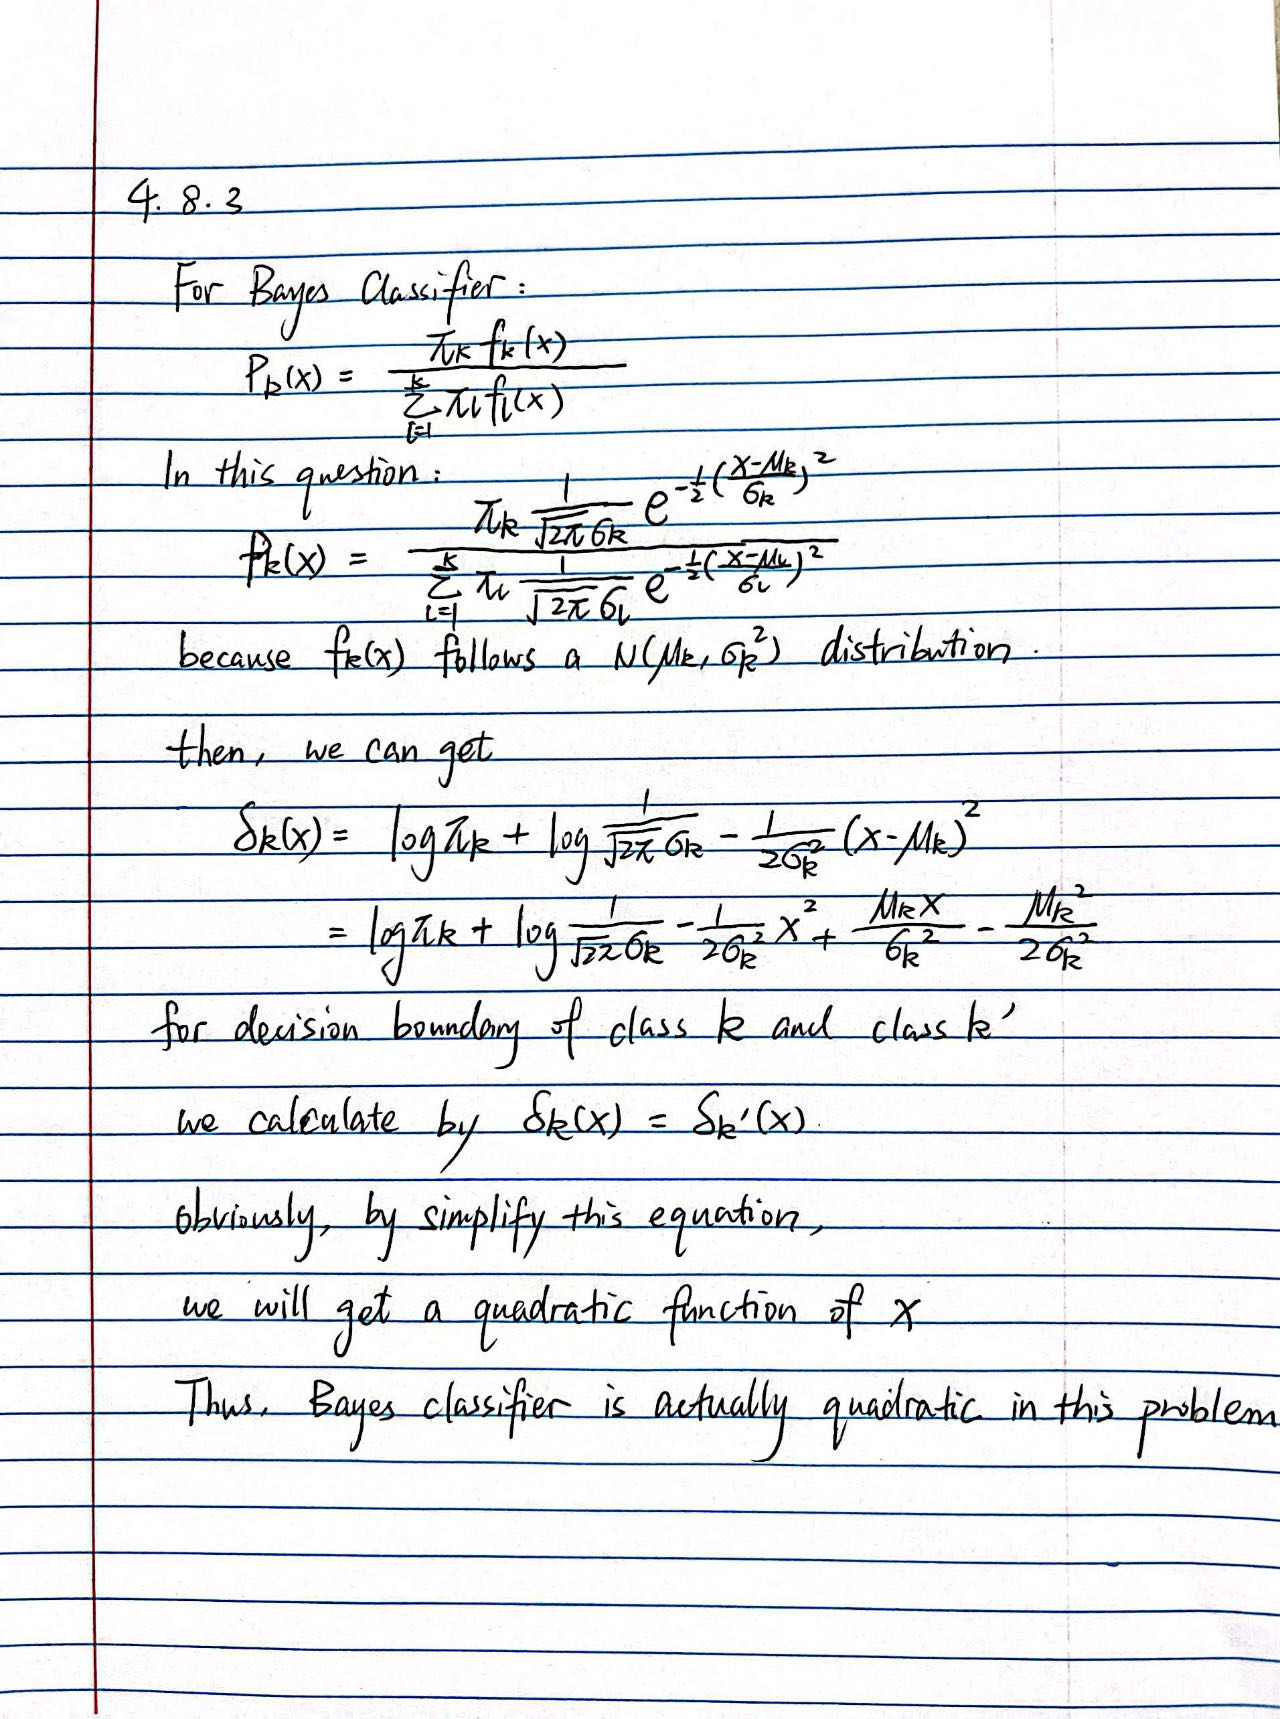 4.8.3
For Bayes Classifier:
P_k(x) = \frac{π_k f_k(x)}{\sum_{l=1}^{k} π_l f_l(x)}
In this question:
P_k(x) = \frac{π_k \frac{1}{\sqrt{2π} σ_k} e^{-\frac{1}{2}(\frac{x-μ_k}{σ_k})^2}}{\sum_{l=1}^{k} π_l \frac{1}{\sqrt{2π} σ_l} e^{-\frac{1}{2}(\frac{x-μ_l}{σ_l})^2}}
because f_k(x) follows a N(μ_k, σ_k^2) distribution.
then, we can get
δ_k(x) = log π_k + log \frac{1}{\sqrt{2π} σ_k} - \frac{1}{2σ_k^2} (x-μ_k)^2
= log π_k + log \frac{1}{\sqrt{2π} σ_k} - \frac{1}{2σ_k^2} x^2 + \frac{μ_k x}{σ_k^2} - \frac{μ_k^2}{2σ_k^2}
for decision boundary of class k and class k'
we calculate by δ_k(x) = δ_k'(x).
obviously, by simplify this equation,
we will get a quadratic function of x
Thus, Bayes classifier is actually quadratic in this problem